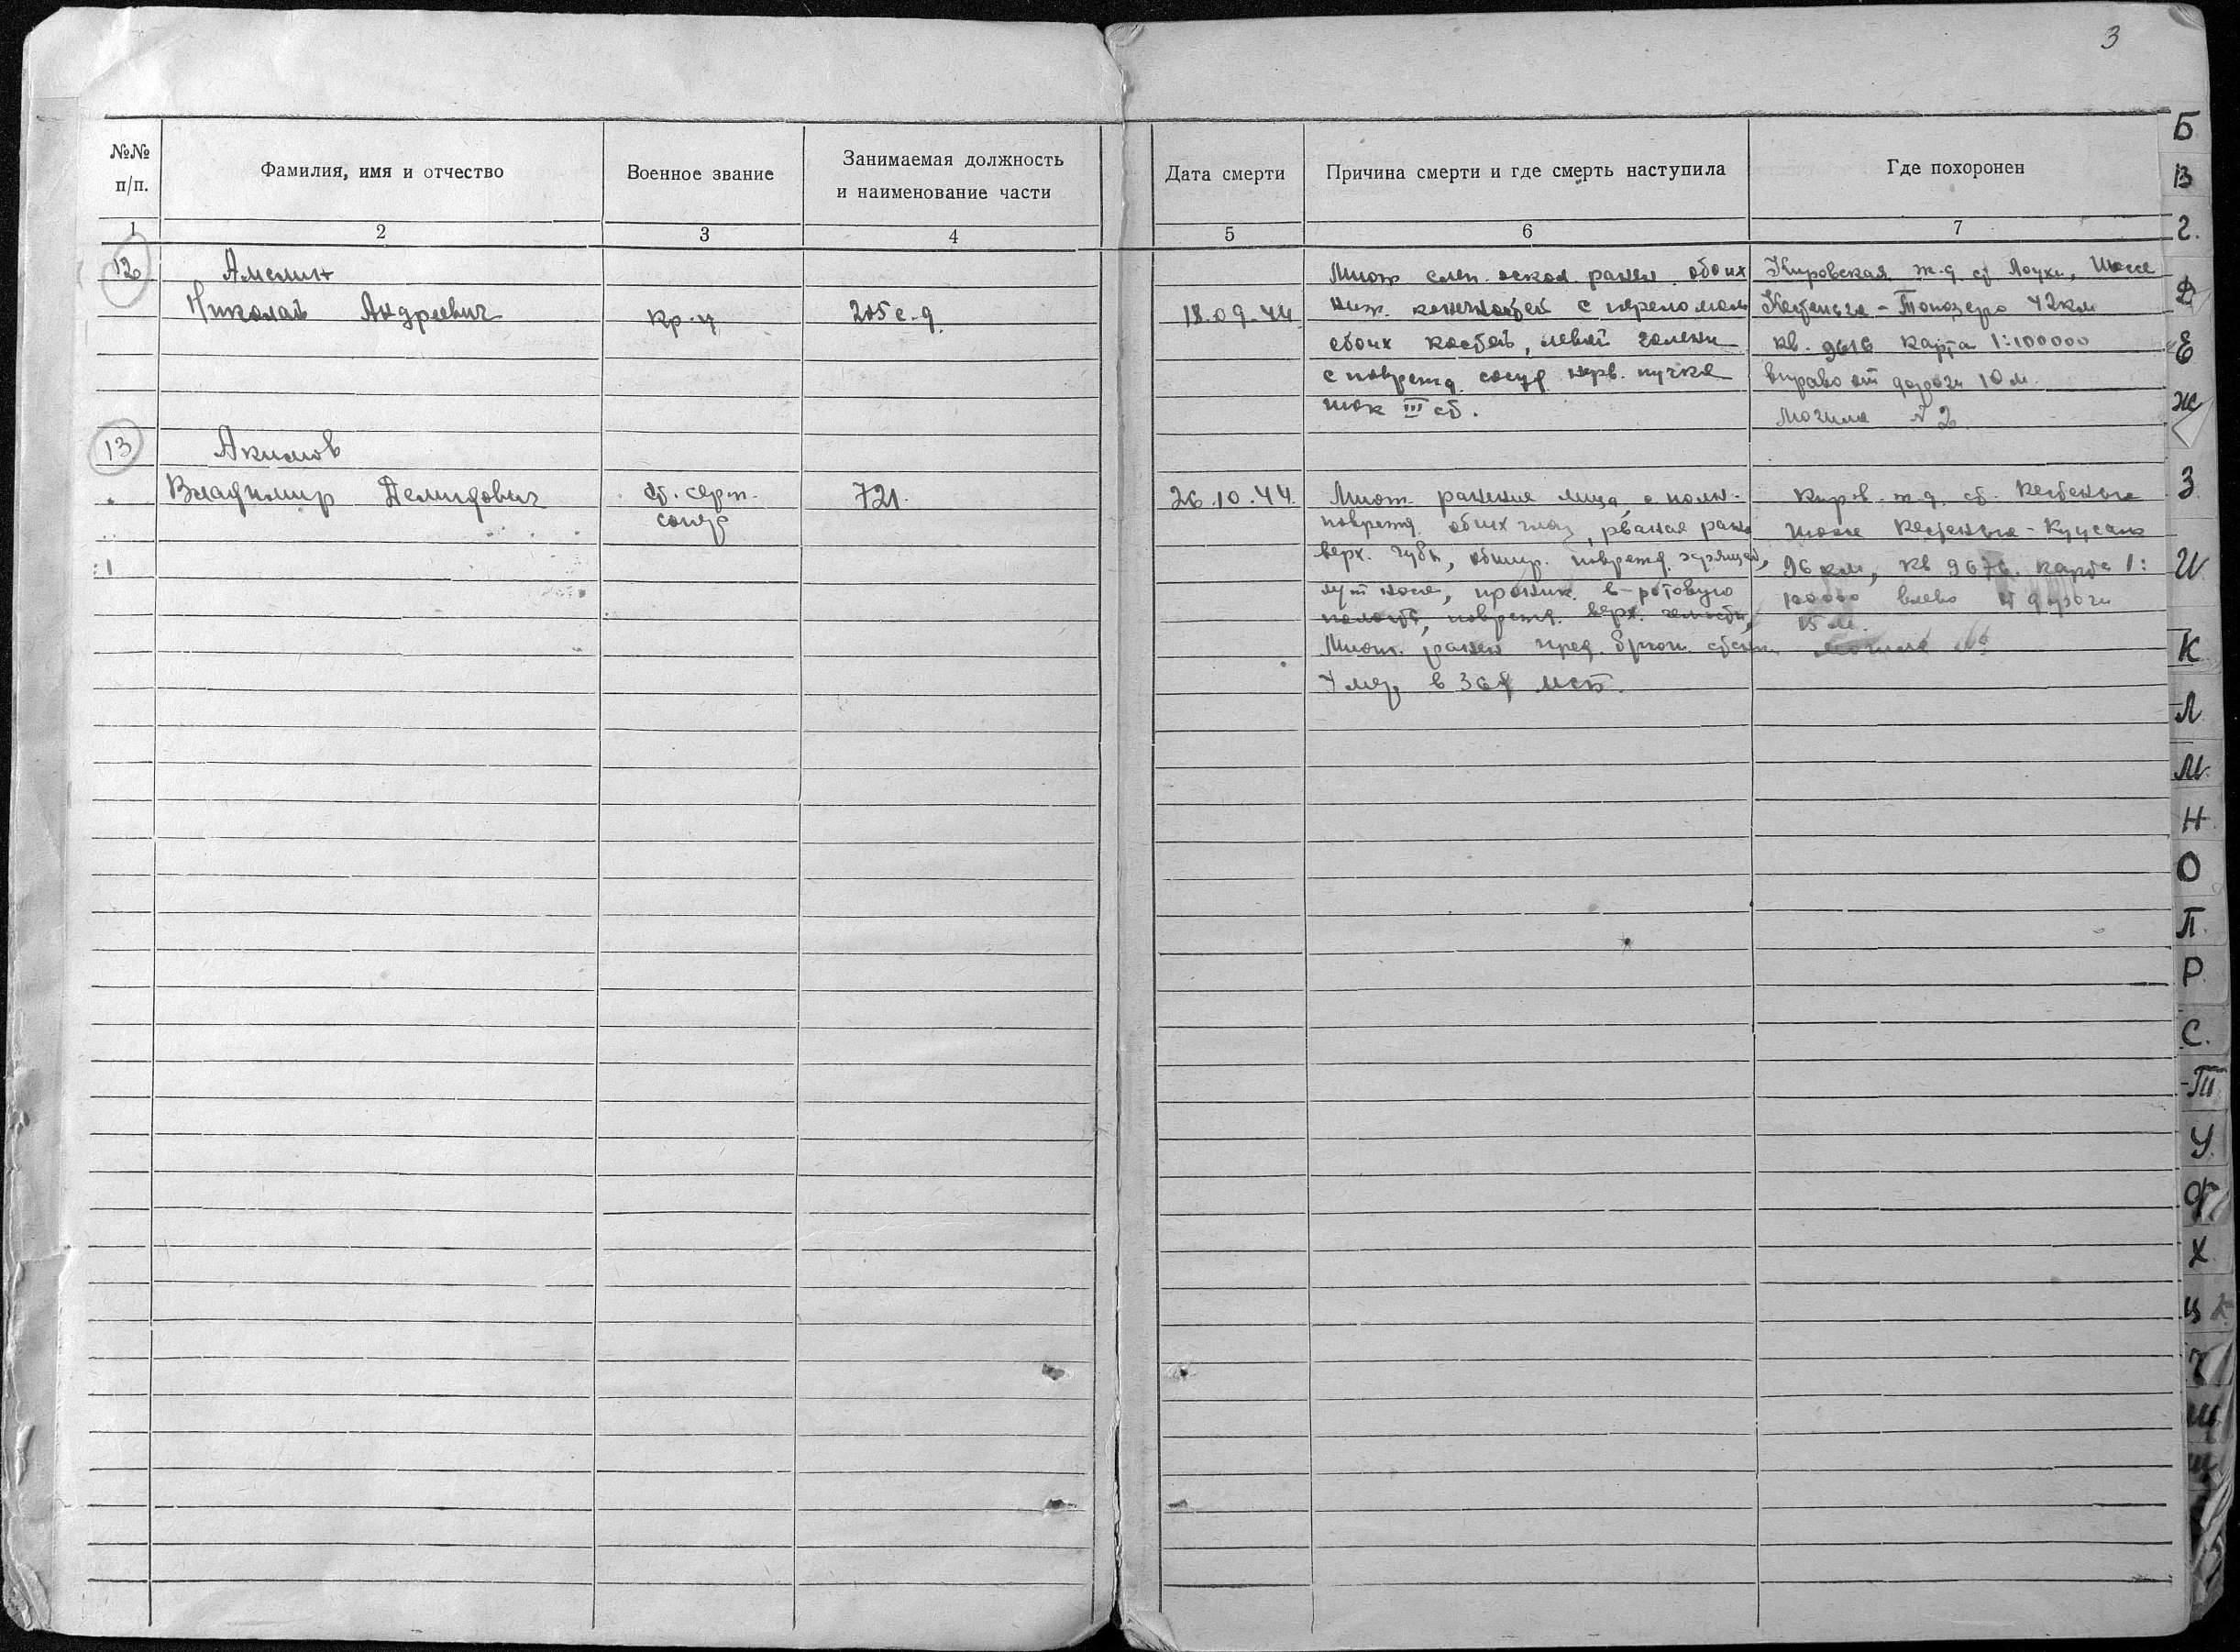 3
№№ п/п.
Фамилия, имя и отчество
Военное звание
Занимаемая должность
и наименование части
Дата смерти
Причина смерти и где смерть наступила
Где похоронен
1 2 3 4 5 6 7
12 Амелин
Николай Андреевич кр-ц 205 с.д. 18.09.44
Множ слеп. оскол. ранен. обоих
ниж. конечностей с переломом
обоих костей, левой голени
с поврежд. сосуд нерв. пучка
шок III ст.
Кировская ж.д ст Лоухи, Шоссе
Кестеньга - Топозеро 42км
кв. 9616 карта 1:100000
вправо от дороги 10 м.
Могила № 2.
13 Акимов
Владимир Демидович ст. серж. 721. 26.10.44.
Множ. ранение лица, с полн.
поврежд. обоих глаз, рваная рана
верх. губы, обшир. поврежд. хрящей,
носа, проник. в ротовую
полость, поврежд. верх. челюсти,
Множ. ранен пред. брюш. стенки
Умер в 368 мсб.
Киров. ж.д. ст. Кестеньга
шоссе Кестеньга - Куусамо
96 км, кв 9676. карта 1:
100000 влево от дороги
15 м.
Могила №
Б
В
Г.
Д
Е
Ж
З
И
К
Л
М.
Н
О
П.
Р
С.
Т
У.
Ф
Х
Ц
Ч